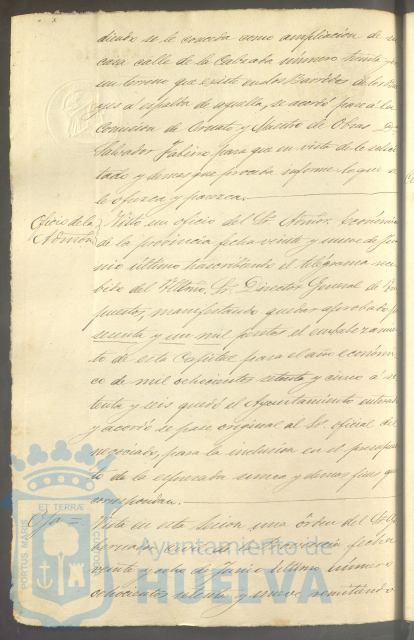 diendo se le conceda como ampliacion de su
casa calle de la Calzada número treinta y
un terreno que existe en los
a espalda de aquella, se acordó pase á la
Comision de Ornato y Maestro de Obras
Salvador para que en vista de lo
y demas que proceda informe lo que se
le ofrezca y parezca.
Oficio de la
Visto un oficio del Sr. Económico
de la provincia fecha veinte y nueve de Ju
nio último trascribiendo el telégrama reci
bido del Yltmo. Sr. Director General de Ym
puestos, manifestando quedar aprobado
y un mil pesetas el encabezamien
to de esta Capital para el año económi
co de mil ochocientos setenta y cinco á se
tenta y seis quedó el Ayuntamiento enterado
y acordó se pase original al Sr. oficial del
negociado, para la inclusion en el presupues
to de la espresada suma y demas fines que
correspondan.
Visto en esta Sesion una órden del Sr. Go
bernador Civil de la Provincia fecha
veinte y ocho de Junio último número
ochocientos setenta y nueve, remitiendo
ET TERRAE
PORTUS MARIS
CUSTODIA
Ayuntamiento de
HUELVA